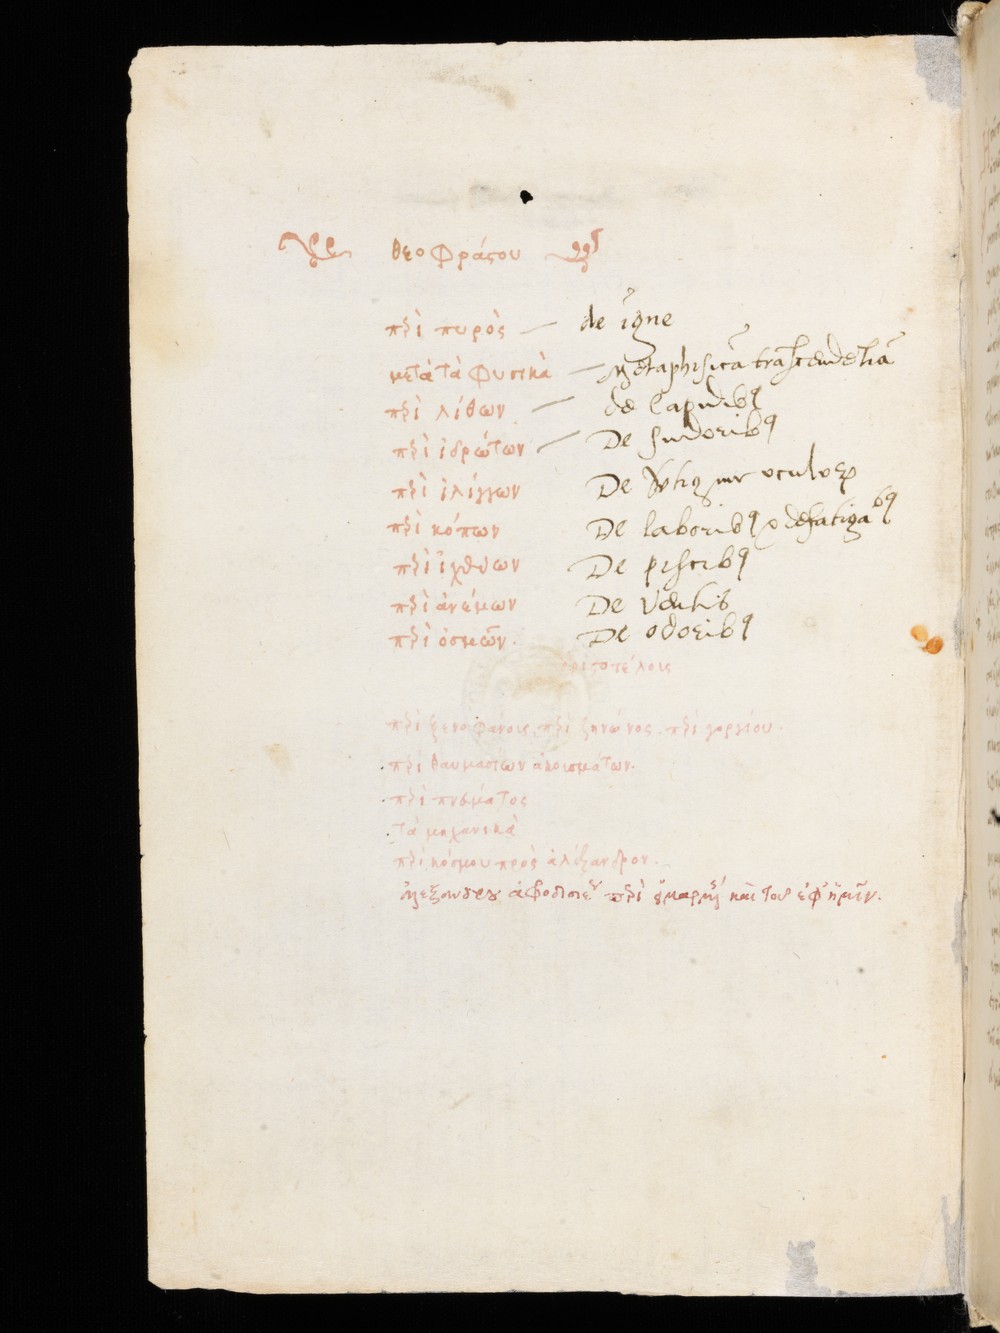 θεοφράστου
περὶ πυρὸς — de igne
μετὰ τὰ φυσικὰ — Metaphisicā trāscendētiā
περὶ λίθων — de lapidibꝰ
περὶ ἱδρώτων — De sudoribꝰ
περὶ ἰλίγγων De oculoꝝ
περὶ κόπων De laboribꝰ & defatigābꝰ
περὶ ἰχθύων De piscibꝰ
περὶ ἀνέμων De vētis
περὶ ὀσμῶν. De odoribꝰ
ἀριστοτέλους
περὶ ξενοφάνους. περὶ ζήνωνος. περὶ γοργίου.
περὶ θαυμασίων ἀκουσμάτων.
περὶ πνεύματος
τὰ μηχανικὰ
περὶ κόσμου πρὸς ἀλέξανδρον.
ἀλεξάνδρου ἀφροδισιέως περὶ εἱμαρμένης καὶ τοῦ ἐφ' ἡμῖν.